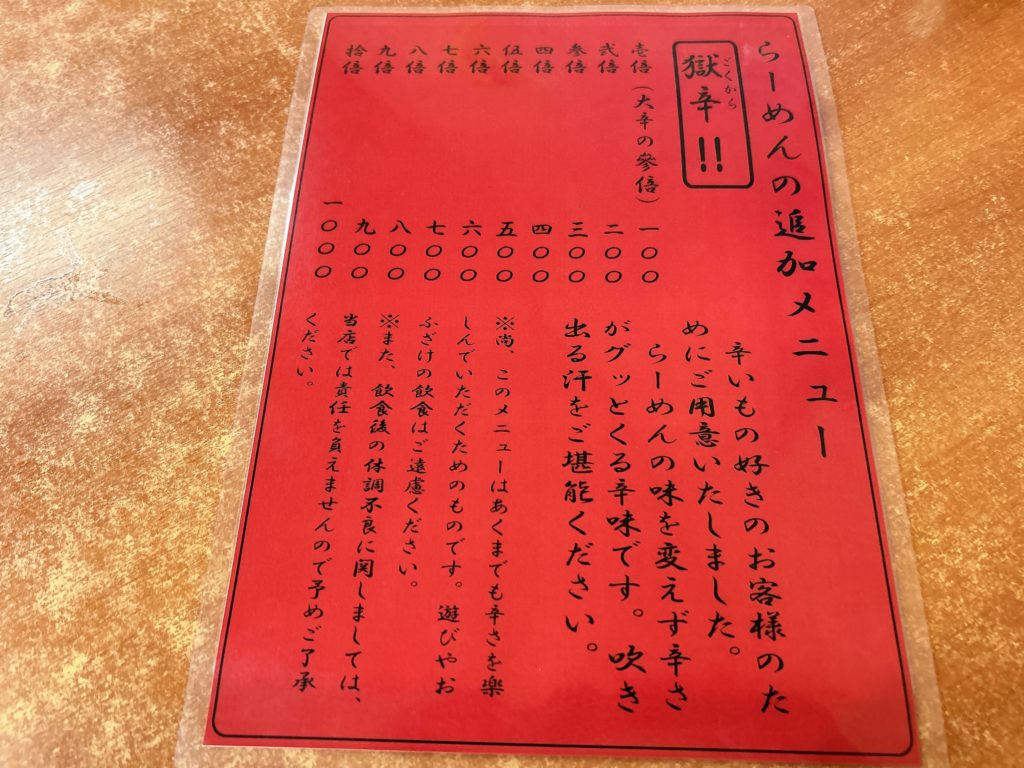 らーめんの追加メニュー
獄辛!!
ごくから
辛いもの好きのお客様のた
めにご用意いたしました。
らーめんの味を変えず辛さ
がグッとくる辛味です。吹き
出る汗をご堪能ください。
壱倍(大辛の參倍) 一〇〇
弐倍 二〇〇
参倍 三〇〇
四倍 四〇〇
伍倍 五〇〇
六倍 六〇〇
七倍 七〇〇
八倍 八〇〇
九倍 九〇〇
拾倍 一〇〇〇
※尚、このメニューはあくまでも辛さを楽
しんでいただくためのものです。遊びやお
ふざけの飲食はご遠慮ください。
※また、飲食後の体調不良に関しましては、
当店では責任を負えませんので予めご了承
ください。